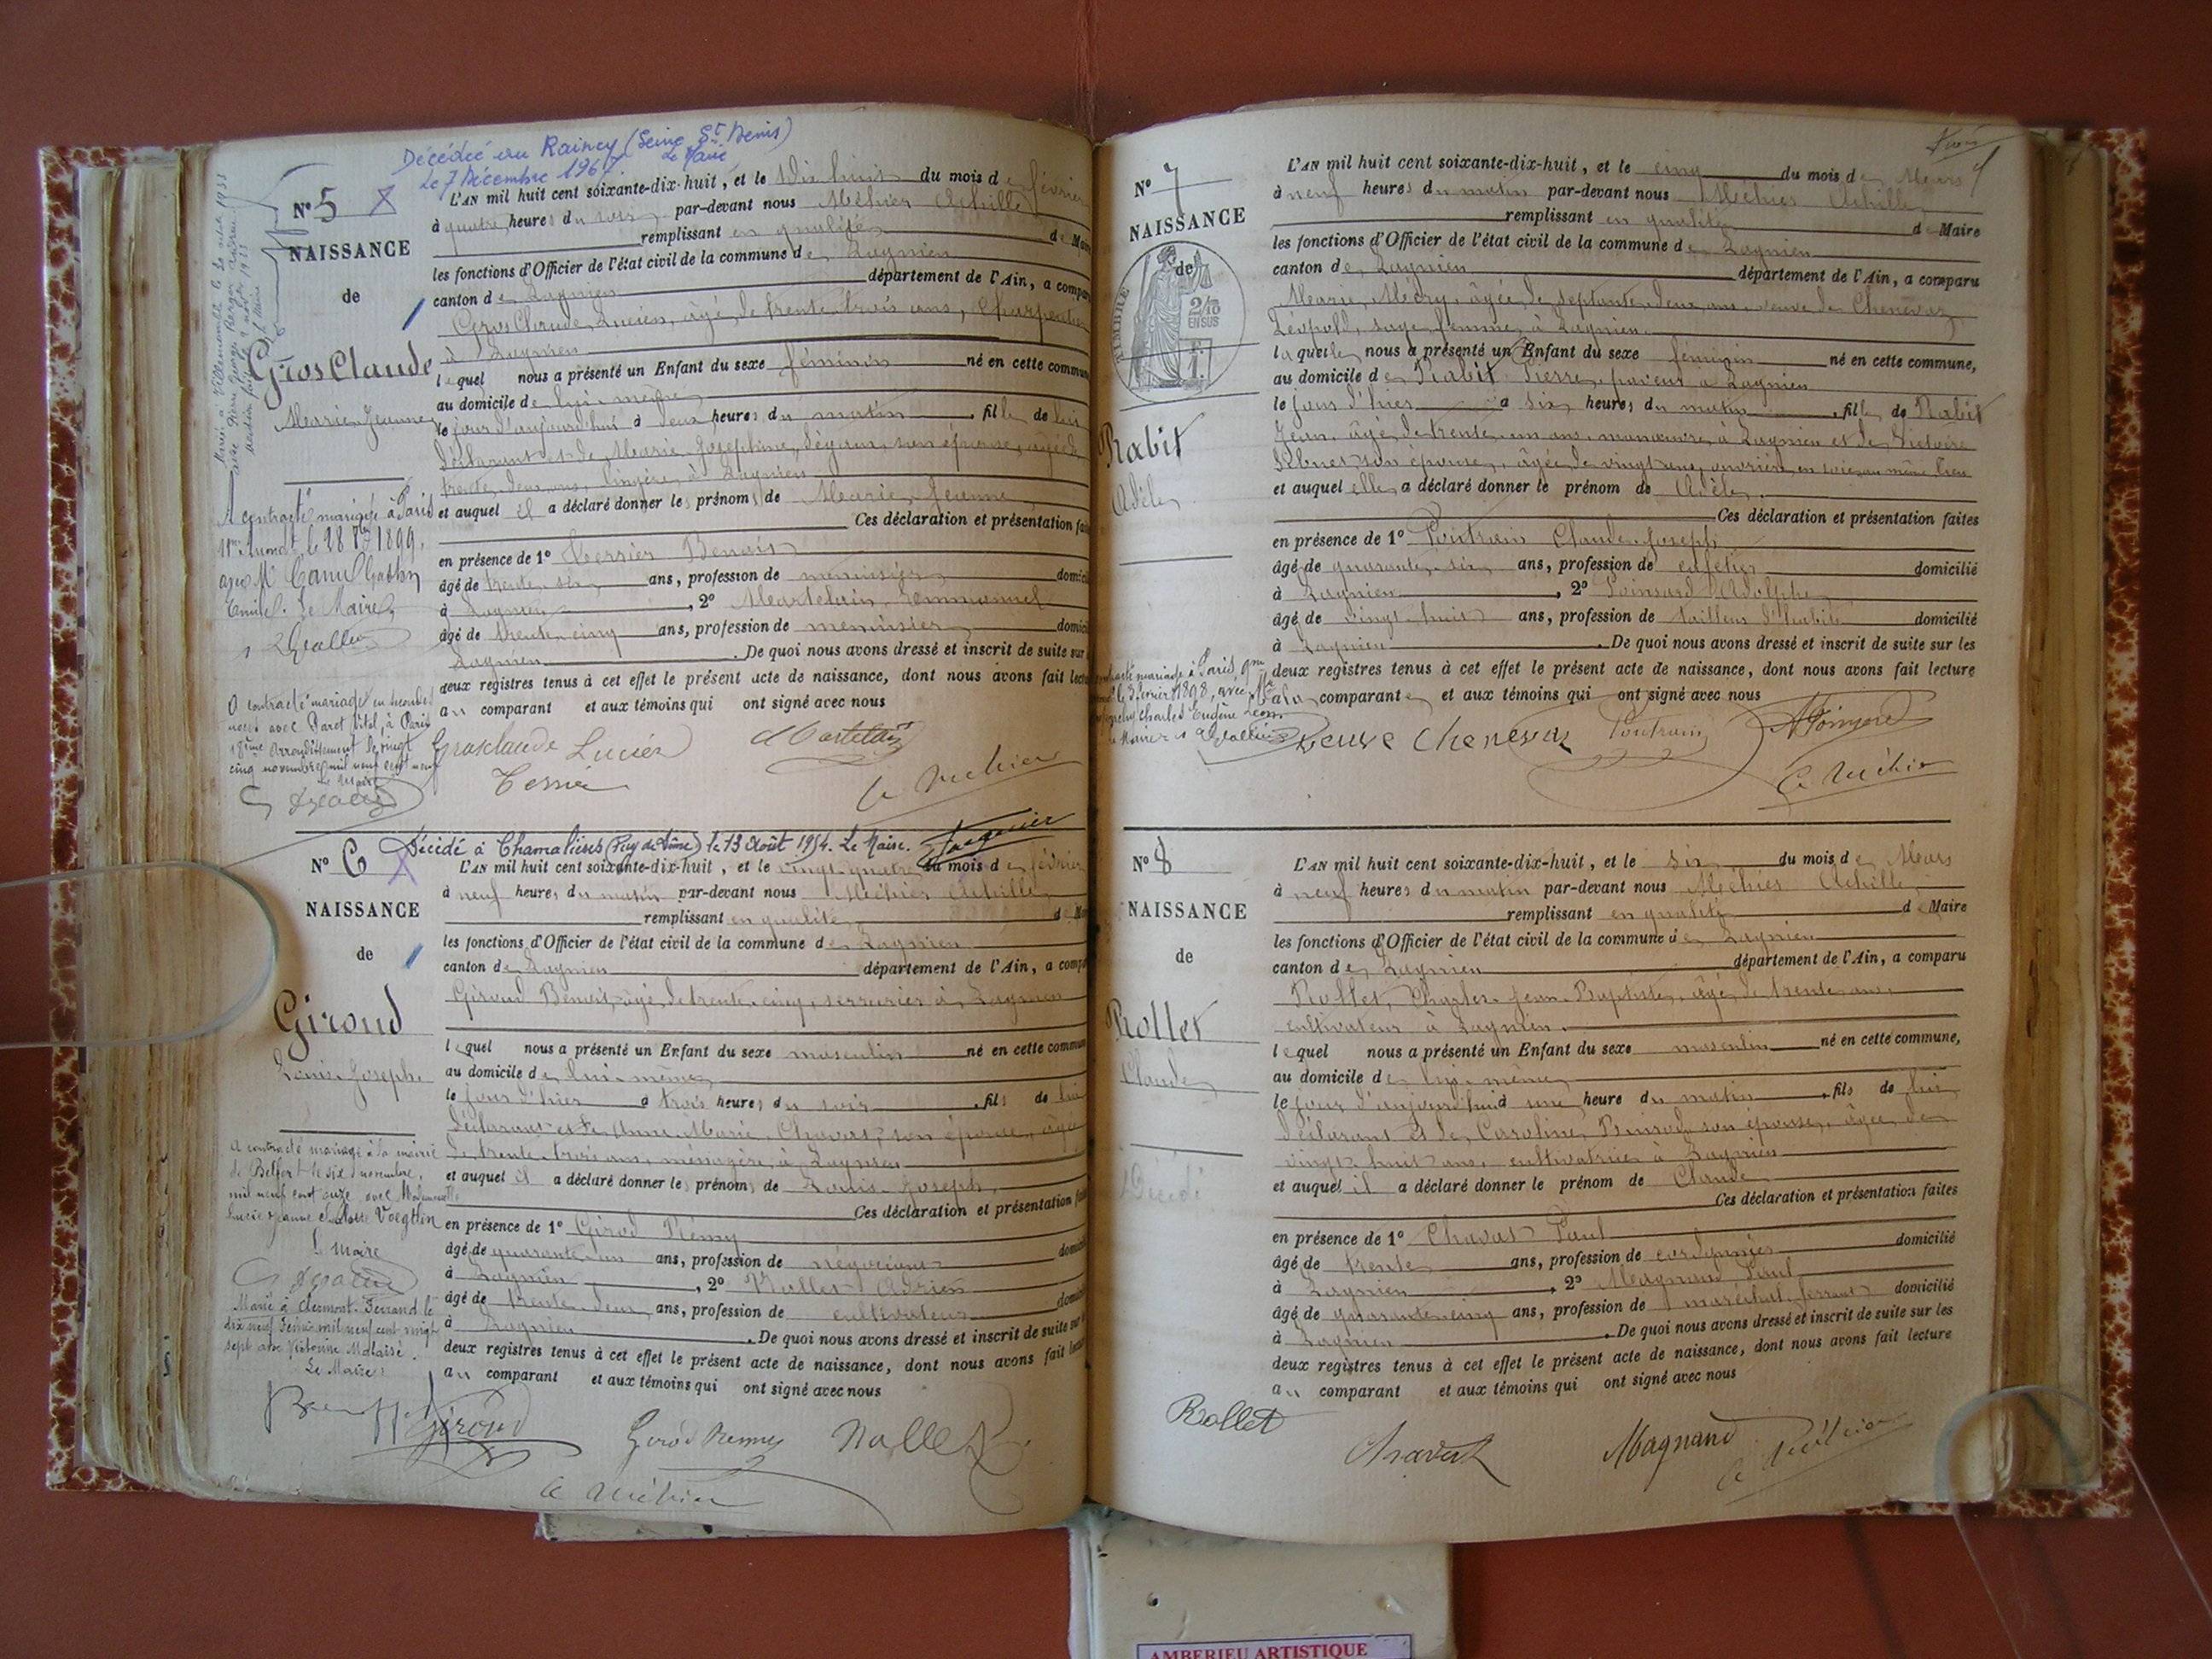 Décédée au Raincy (Seine St Denis)
Le 7 Décembre 1967. Le Maire
N° 5
NAISSANCE
de
GrosClaude
Marie Jeanne
L'AN mil huit cent soixante-dix-huit, et le Dix huit du mois de février
à quatre heures du soir par-devant nous Méhier Achille
remplissant en qualité de Maire
les fonctions d'Officier de l'état civil de la commune de Lagnieu
canton de Lagnieu département de l'Ain, a comparu
Gros Claude Lucien, âgé de trente trois ans, Charpentier
à Lagnieu
lequel nous a présenté un Enfant du sexe féminin né en cette commune
au domicile de lui-même
le jour d'aujourd'hui à deux heures du matin, fille de lui
déclarant et de Marie Joséphine Séguin son épouse, âgée de
trente deux ans, lingère, à Lagnieu
et auquel il a déclaré donner les prénoms de Marie Jeanne
Ces déclaration et présentation
en présence de 1°
âgé de trente six ans, profession de menuisier
à Lagnieu, 2° Martelain Emmanuel
âgé de trente cinq ans, profession de menuisier
Lagnieu. De quoi nous avons dressé et inscrit de suite sur
deux registres tenus à cet effet le présent acte de naissance, dont nous avons fait lecture
au comparant et aux témoins qui ont signé avec nous
A contracté mariage à Paris
11me Arrondt le 28 1899,
avec Mr Canul Gaston
Emile. Le Maire
A contracté mariage en secondes
noces avec Paret Vital, à Paris
18ème Arrondissement le vingt
cinq novembre mil neuf cent neuf
Le Maire
Grosclaude Lucien
Martelain
A Méhier
N° 6 Décédé à Chamalières (Puy de Dôme) le 13 Août 1954. Le Maire.
NAISSANCE
de
Giroud
Louis Joseph
L'AN mil huit cent soixante-dix-huit, et le vingt quatre du mois de février
à neuf heures du matin par-devant nous Méhier Achille
remplissant en qualité de
les fonctions d'Officier de l'état civil de la commune de Lagnieu
canton de Lagnieu département de l'Ain, a comparu
Giroud Benoit, âgé de trente cinq, serrurier à Lagnieu
lequel nous a présenté un Enfant du sexe masculin né en cette commune
au domicile de lui-même
le jour d'hier à trois heures du soir, fils de lui
déclarant et de Anne Marie Chavas, son épouse, âgée
de trente trois ans, ménagère, à Lagnieu
et auquel il a déclaré donner les prénoms de Louis Joseph,
Ces déclaration et présentation
en présence de 1° Girod Rémy
âgé de quarante un ans, profession de négociant
à Lagnieu, 2° Adrien
âgé de trente deux ans, profession de cultivateur
à Lagnieu. De quoi nous avons dressé et inscrit de suite sur
deux registres tenus à cet effet le présent acte de naissance, dont nous avons fait lecture
au comparant et aux témoins qui ont signé avec nous
A contracté mariage à la mairie
de Belfort le six novembre,
mil neuf cent onze avec Mademoiselle
Lucie Jeanne Voegtlin
Le Maire
Marié à Clermont-Ferrand le
dix neuf Février mil neuf cent vingt
sept avec Victorine Malaise.
Le Maire
Giroud
Girod Remy
A Méhier
N° 7
NAISSANCE
de
TIMBRE
ENSUS
Rabit
Adèle
L'AN mil huit cent soixante-dix-huit, et le cinq du mois de Mars
à neuf heures du matin par-devant nous Méhier Achille
remplissant en qualité de Maire
les fonctions d'Officier de l'état civil de la commune de Lagnieu
canton de Lagnieu département de l'Ain, a comparu
Marie Médry, âgée de septante deux ans, veuve de Chenevaz
Léopold, sage femme, à Lagnieu
laquelle nous a présenté un Enfant du sexe féminin né en cette commune,
au domicile de Rabit Pierre, paveur à Lagnieu
le jour d'hier à six heures du matin, fille de Rabit
Jean, âgé de trente un ans, manœuvre, à Lagnieu et de Victoire
son épouse, âgée de vingt ans, ouvrière en soie au même lieu
et auquel elle a déclaré donner le prénom de Adèle.
Ces déclaration et présentation faites
en présence de 1° Poutrain Claude Joseph
âgé de quarante six ans, profession de cafetier domicilié
à Lagnieu, 2° Poinsard Adolphe
âgé de vingt huit ans, profession de tailleur d'habits domicilié
à Lagnieu. De quoi nous avons dressé et inscrit de suite sur les
deux registres tenus à cet effet le présent acte de naissance, dont nous avons fait lecture
à la comparante et aux témoins qui ont signé avec nous
mariage à Paris,
Février 1898, avec
Charles Eugène Léon
Le Maire
veuve Chenevaz
Poutrain
A Poinsard
A Méhier
N° 8
NAISSANCE
de
Rollet
Claude
Décédé
L'AN mil huit cent soixante-dix-huit, et le six du mois de Mars
à neuf heures du matin par-devant nous Méhier Achille
remplissant en qualité de Maire
les fonctions d'Officier de l'état civil de la commune de Lagnieu
canton de Lagnieu département de l'Ain, a comparu
Rollet, Charles Jean-Baptiste, âgé de trente ans,
cultivateur à Lagnieu.
lequel nous a présenté un Enfant du sexe masculin né en cette commune,
au domicile de lui-même
le jour d'aujourd'hui à une heure du matin, fils de lui
déclarant et de Caroline son épouse, âgée de
vingt huit ans, cultivatrice à Lagnieu
et auquel il a déclaré donner le prénom de Claude
Ces déclaration et présentation faites
en présence de 1° Chavas Paul
âgé de trente ans, profession de cordonnier domicilié
à Lagnieu, 2° Magnand Paul
âgé de quarante cinq ans, profession de maréchal ferrant domicilié
à Lagnieu. De quoi nous avons dressé et inscrit de suite sur les
deux registres tenus à cet effet le présent acte de naissance, dont nous avons fait lecture
au comparant et aux témoins qui ont signé avec nous
Rollet
Magnand
A Méhier
AMBERIEU ARTISTIQUE